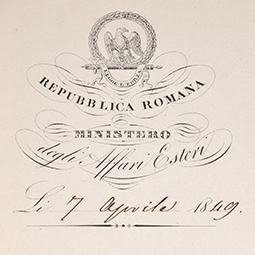 REPUBBLICA ROMANA
MINISTERO
degli Affari Esteri
Li 7 Aprile 1849.